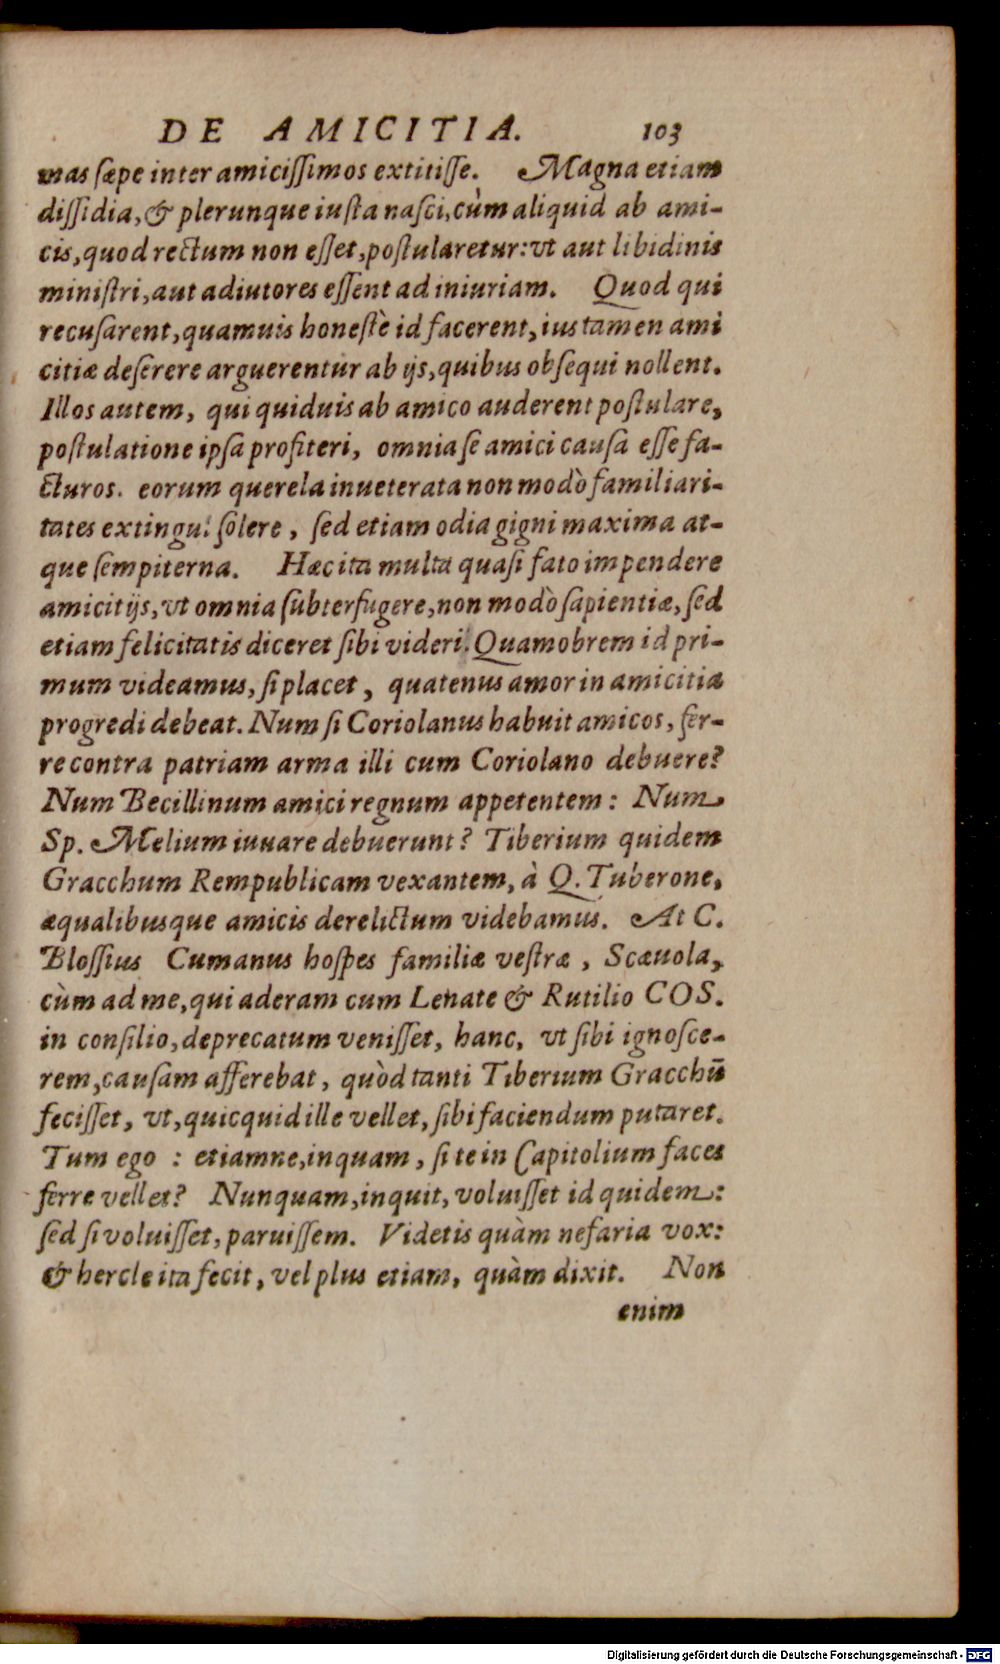 DE AMICITIA. 103
mas sæpe inter amicissimos extitisse. Magna etiam
dissidia, & plerunque iusta nasci, cùm aliquid ab ami-
cis, quod rectum non esset, postularetur: vt aut libidinis
ministri, aut adiutores essent ad iniuriam. Quod qui
recusarent, quamuis honestè id facerent, ius tamen ami
citiæ deserere arguerentur ab ijs, quibus obsequi nollent.
Illos autem, qui quiduis ab amico auderent postulare,
postulatione ipsa profiteri, omnia se amici causa esse fa-
cturos. eorum querela inueterata non modò familiari-
tates extingui solere, sed etiam odia gigni maxima at-
que sempiterna. Hæc ita multa quasi fato impendere
amicitijs, vt omnia subterfugere, non modò sapientiæ, sed
etiam felicitatis diceret sibi videri. Quamobrem id pri-
mum videamus, si placet, quatenus amor in amicitia
progredi debeat. Num si Coriolanus habuit amicos, fer-
re contra patriam arma illi cum Coriolano debuere?
Num Becillinum amici regnum appetentem: Num
Sp. Melium iuuare debuerunt? Tiberium quidem
Gracchum Rempublicam vexantem, à Q. Tuberone,
æqualibusque amicis derelictum videbamus. At C.
Blossius Cumanus hospes familiæ vestræ, Scæuola,
cùm ad me, qui aderam cum Lenate & Rutilio COS.
in consilio, deprecatum venisset, hanc, vt sibi ignosce-
rem, causam afferebat, quòd tanti Tiberium Gracchū
fecisset, vt, quicquid ille vellet, sibi faciendum putaret.
Tum ego: etiamne, inquam, si te in Capitolium faces
ferre vellet? Nunquam, inquit, voluisset id quidem:
sed si voluisset, paruissem. Videtis quàm nefaria vox:
& hercle ita fecit, vel plus etiam, quàm dixit. Non
enim
Digitalisierung gefördert durch die Deutsche Forschungsgemeinschaft - DFG